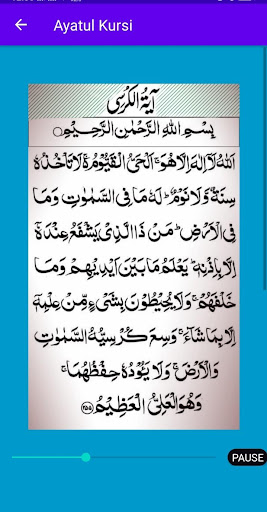 Ayatul Kursi
آيَةُ الْكُرْسِى
بِسْمِ اللهِ الرَّحْمٰنِ الرَّحِيْمِ
اَللهُ لَآ اِلٰهَ اِلَّا هُوَ ۚ اَلْحَىُّ الْقَيُّوْمُ ۚ لَا تَاْخُذُهٗ
سِنَةٌ وَّلَا نَوْمٌ ؕ لَهٗ مَا فِى السَّمٰوٰتِ وَمَا
فِى الْاَرْضِ ؕ مَنْ ذَا الَّذِىْ يَشْفَعُ عِنْدَهٗٓ
اِلَّا بِاِذْنِهٖ ؕ يَعْلَمُ مَا بَيْنَ اَيْدِيْهِمْ وَمَا
خَلْفَهُمْ ۚ وَلَا يُحِيْطُوْنَ بِشَىْءٍ مِّنْ عِلْمِهٖٓ
اِلَّا بِمَا شَآءَ ۚ وَسِعَ كُرْسِيُّهُ السَّمٰوٰتِ
وَالْاَرْضَ ۚ وَلَا يَـُٔوْدُهٗ حِفْظُهُمَا ۚ
وَهُوَ الْعَلِىُّ الْعَظِيْمُ ۝۲۵۵
PAUSE